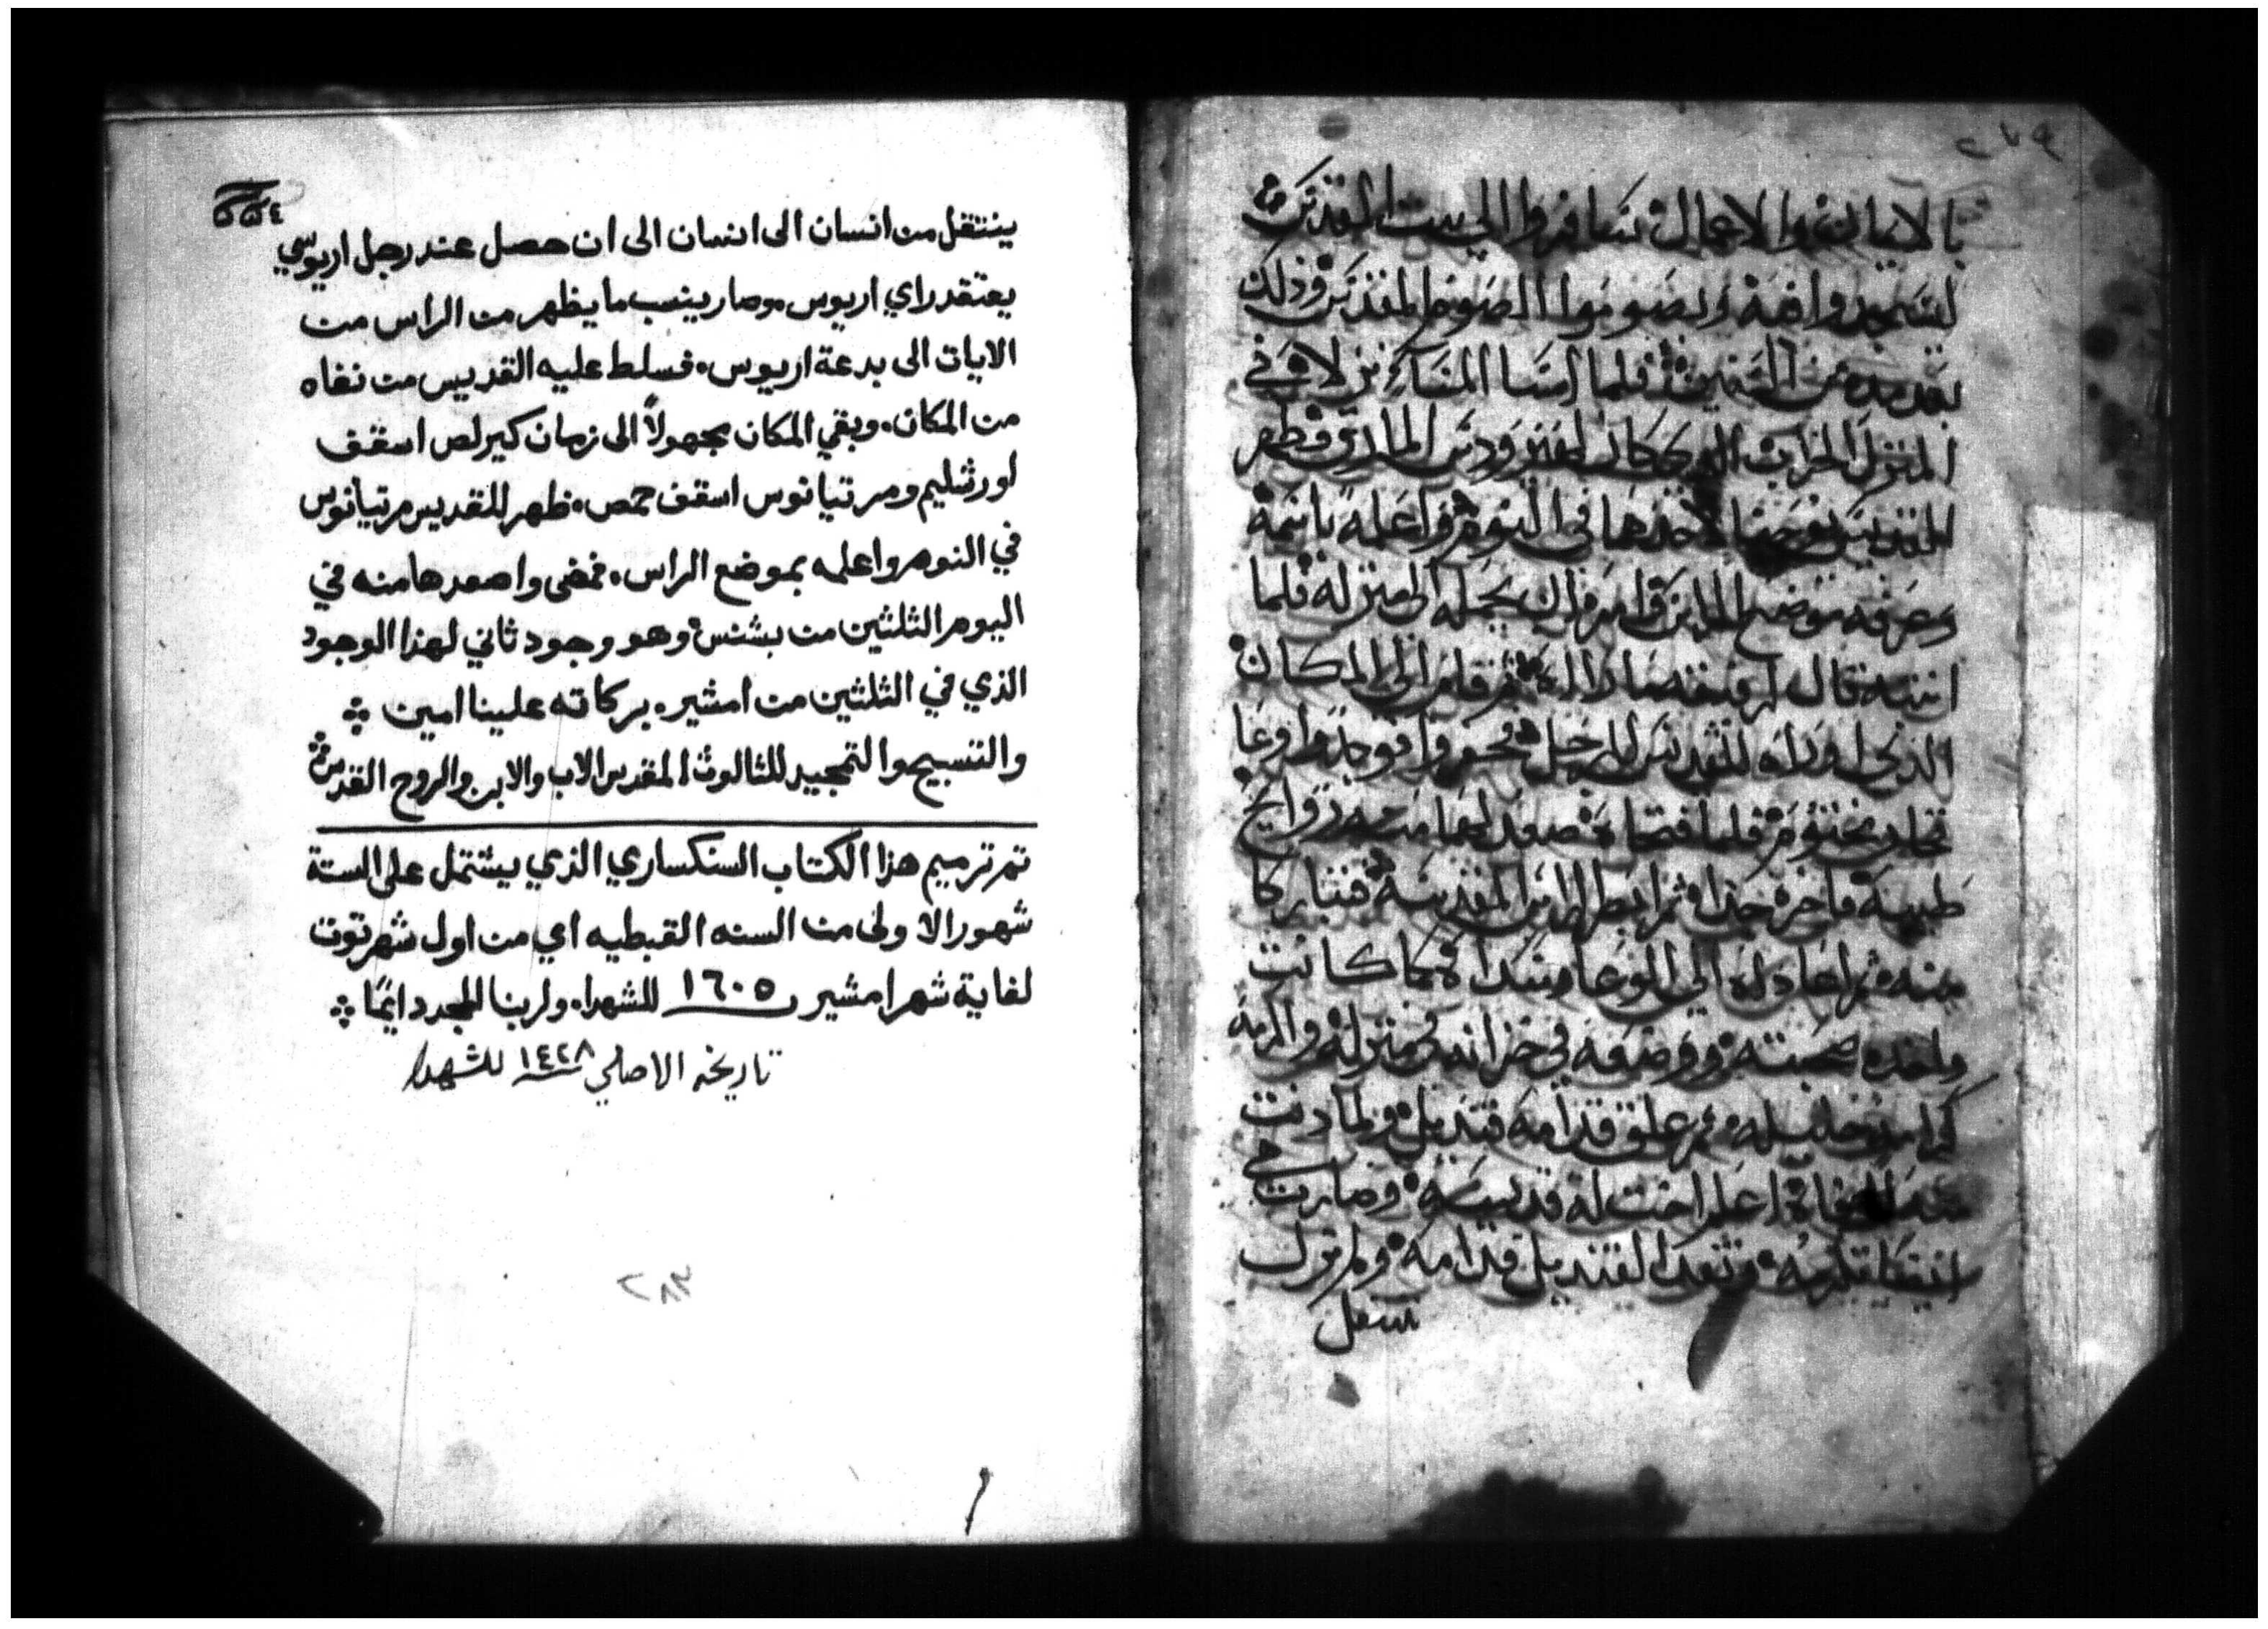 ٢٧٩
بالايمان والاعمال سافروا الى بيت المقدس
ليسجدوا فيه ويصوموا الصوم المقدس وذلك
بعد مدة من السنين فلما امسا المسا نزلا في
المنزل الخراب الذي كان لهيرودس المارق فظهر
القديس يوحنا لاحدهما في النوم واعلمه باسمه
وعرفه موضع الراس وامره ان يحمله الى منزله فلما
انتبه قال لرفيقه فقام الى المكان
الذي اوراه القديس للرجل فحفروا فوجدوا وعا
فخار مختوم فلما فتحاه صعد لهما منه روايح
طيبة فاخرة جدا ثم ابصر الراس المقدسة فتباركا
منه ثم اعادوه الى الوعا وسداه كما كانت
واخده صحبته ووضعه في خزانه في منزله واكرمه
كرامه جليله ثم علق قدامه قنديل ولما دنت
منه الوفاة اعلم اخت له قديسه وصارت هي
ايضا تكرمه وتقد القنديل قدامه ولم تزل
تنتقل
٥٥٤
ينتقل من انسان الى انسان الى ان حصل عند رجل اريوسي
يعتقد راي اريوس وصار ينسب ما يظهر من الراس من
الايات الى بدعة اريوس. فسلط عليه القديس من نفاه
من المكان. وبقي المكان مجهولاً الى زمان كيرلص اسقف
لورشليم ومرتيانوس اسقف حمص. ظهر للقديس مرتيانوس
في النوم واعلمه بموضع الراس. فمضى واصعدها منه في
اليوم الثلثين من بشنس وهو وجود ثاني لهذا الوجود
الذي في الثلثين من امشير. بركاته علينا امين ܀
والتسبيح والتمجيد للثالوث المقدس الاب والابن والروح القدس
تم ترميم هذا الكتاب السنكساري الذي يشتمل على الستة
شهور الاولى من السنه القبطيه اي من اول شهر توت
لغاية شهر امشير ١٦٠٥ للشهدا. ولربنا المجد دايمًا ܀
تاريخه الاصلي ١٤٢٨ للشهدا
٢٨٣